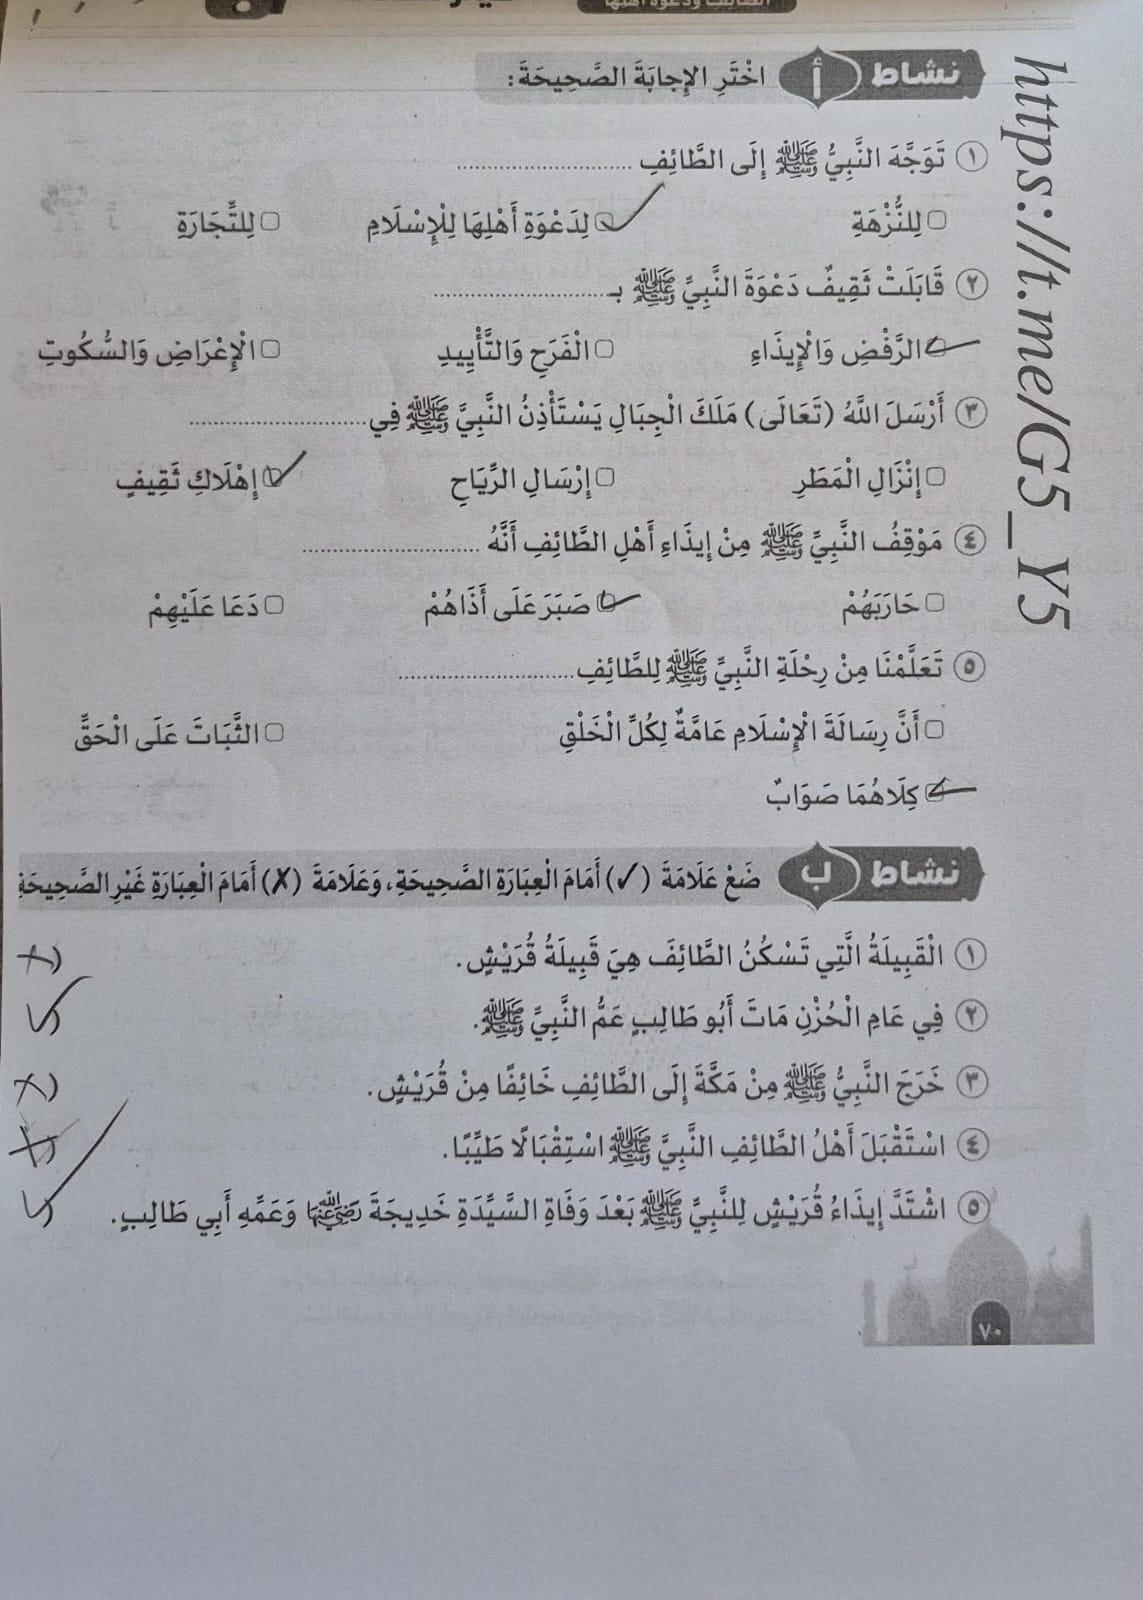 الطائف ودعوة أهلها
نشاط أ اخْتَرِ الإِجابَةَ الصَّحِيحَةَ:
١ تَوَجَّهَ النَّبِيُّ ﷺ إِلَى الطَّائِفِ ..............................
لِلنُّزْهَةِ لِدَعْوَةِ أَهْلِهَا لِلْإِسْلَامِ لِلتِّجَارَةِ
٢ قَابَلَتْ ثَقِيفٌ دَعْوَةَ النَّبِيِّ ﷺ بـ..............................
الرَّفْضِ وَالْإِيذَاءِ الْفَرَحِ وَالتَّأْيِيدِ الْإِعْرَاضِ وَالسُّكُوتِ
٣ أَرْسَلَ اللَّهُ (تَعَالَى) مَلَكَ الْجِبَالِ يَسْتَأْذِنُ النَّبِيَّ ﷺ فِي..............................
إِنْزَالِ الْمَطَرِ إِرْسَالِ الرِّيَاحِ إِهْلَاكِ ثَقِيفٍ
٤ مَوْقِفُ النَّبِيِّ ﷺ مِنْ إِيذَاءِ أَهْلِ الطَّائِفِ أَنَّهُ ..............................
حَارَبَهُمْ صَبَرَ عَلَى أَذَاهُمْ دَعَا عَلَيْهِمْ
٥ تَعَلَّمْنَا مِنْ رِحْلَةِ النَّبِيِّ ﷺ لِلطَّائِفِ..............................
أَنَّ رِسَالَةَ الْإِسْلَامِ عَامَّةٌ لِكُلِّ الْخَلْقِ الثَّبَاتَ عَلَى الْحَقِّ
كِلَاهُمَا صَوَابٌ
نشاط ب ضَعْ عَلَامَةَ (✓) أَمَامَ الْعِبَارَةِ الصَّحِيحَةِ، وَعَلَامَةَ (✗) أَمَامَ الْعِبَارَةِ غَيْرِ الصَّحِيحَةِ
١ الْقَبِيلَةُ الَّتِي تَسْكُنُ الطَّائِفَ هِيَ قَبِيلَةُ قُرَيْشٍ. (✗
٢ فِي عَامِ الْحُزْنِ مَاتَ أَبُو طَالِبٍ عَمُّ النَّبِيِّ ﷺ. ✓
٣ خَرَجَ النَّبِيُّ ﷺ مِنْ مَكَّةَ إِلَى الطَّائِفِ خَائِفًا مِنْ قُرَيْشٍ. ✗
٤ اسْتَقْبَلَ أَهْلُ الطَّائِفِ النَّبِيَّ ﷺ اسْتِقْبَالًا طَيِّبًا. ✗
٥ اشْتَدَّ إِيذَاءُ قُرَيْشٍ لِلنَّبِيِّ ﷺ بَعْدَ وَفَاةِ السَّيِّدَةِ خَدِيجَةَ رَضِيَ اللَّهُ عَنْهَا وَعَمِّهِ أَبِي طَالِبٍ. ✓
٧٠
https://t.me/G5_Y5